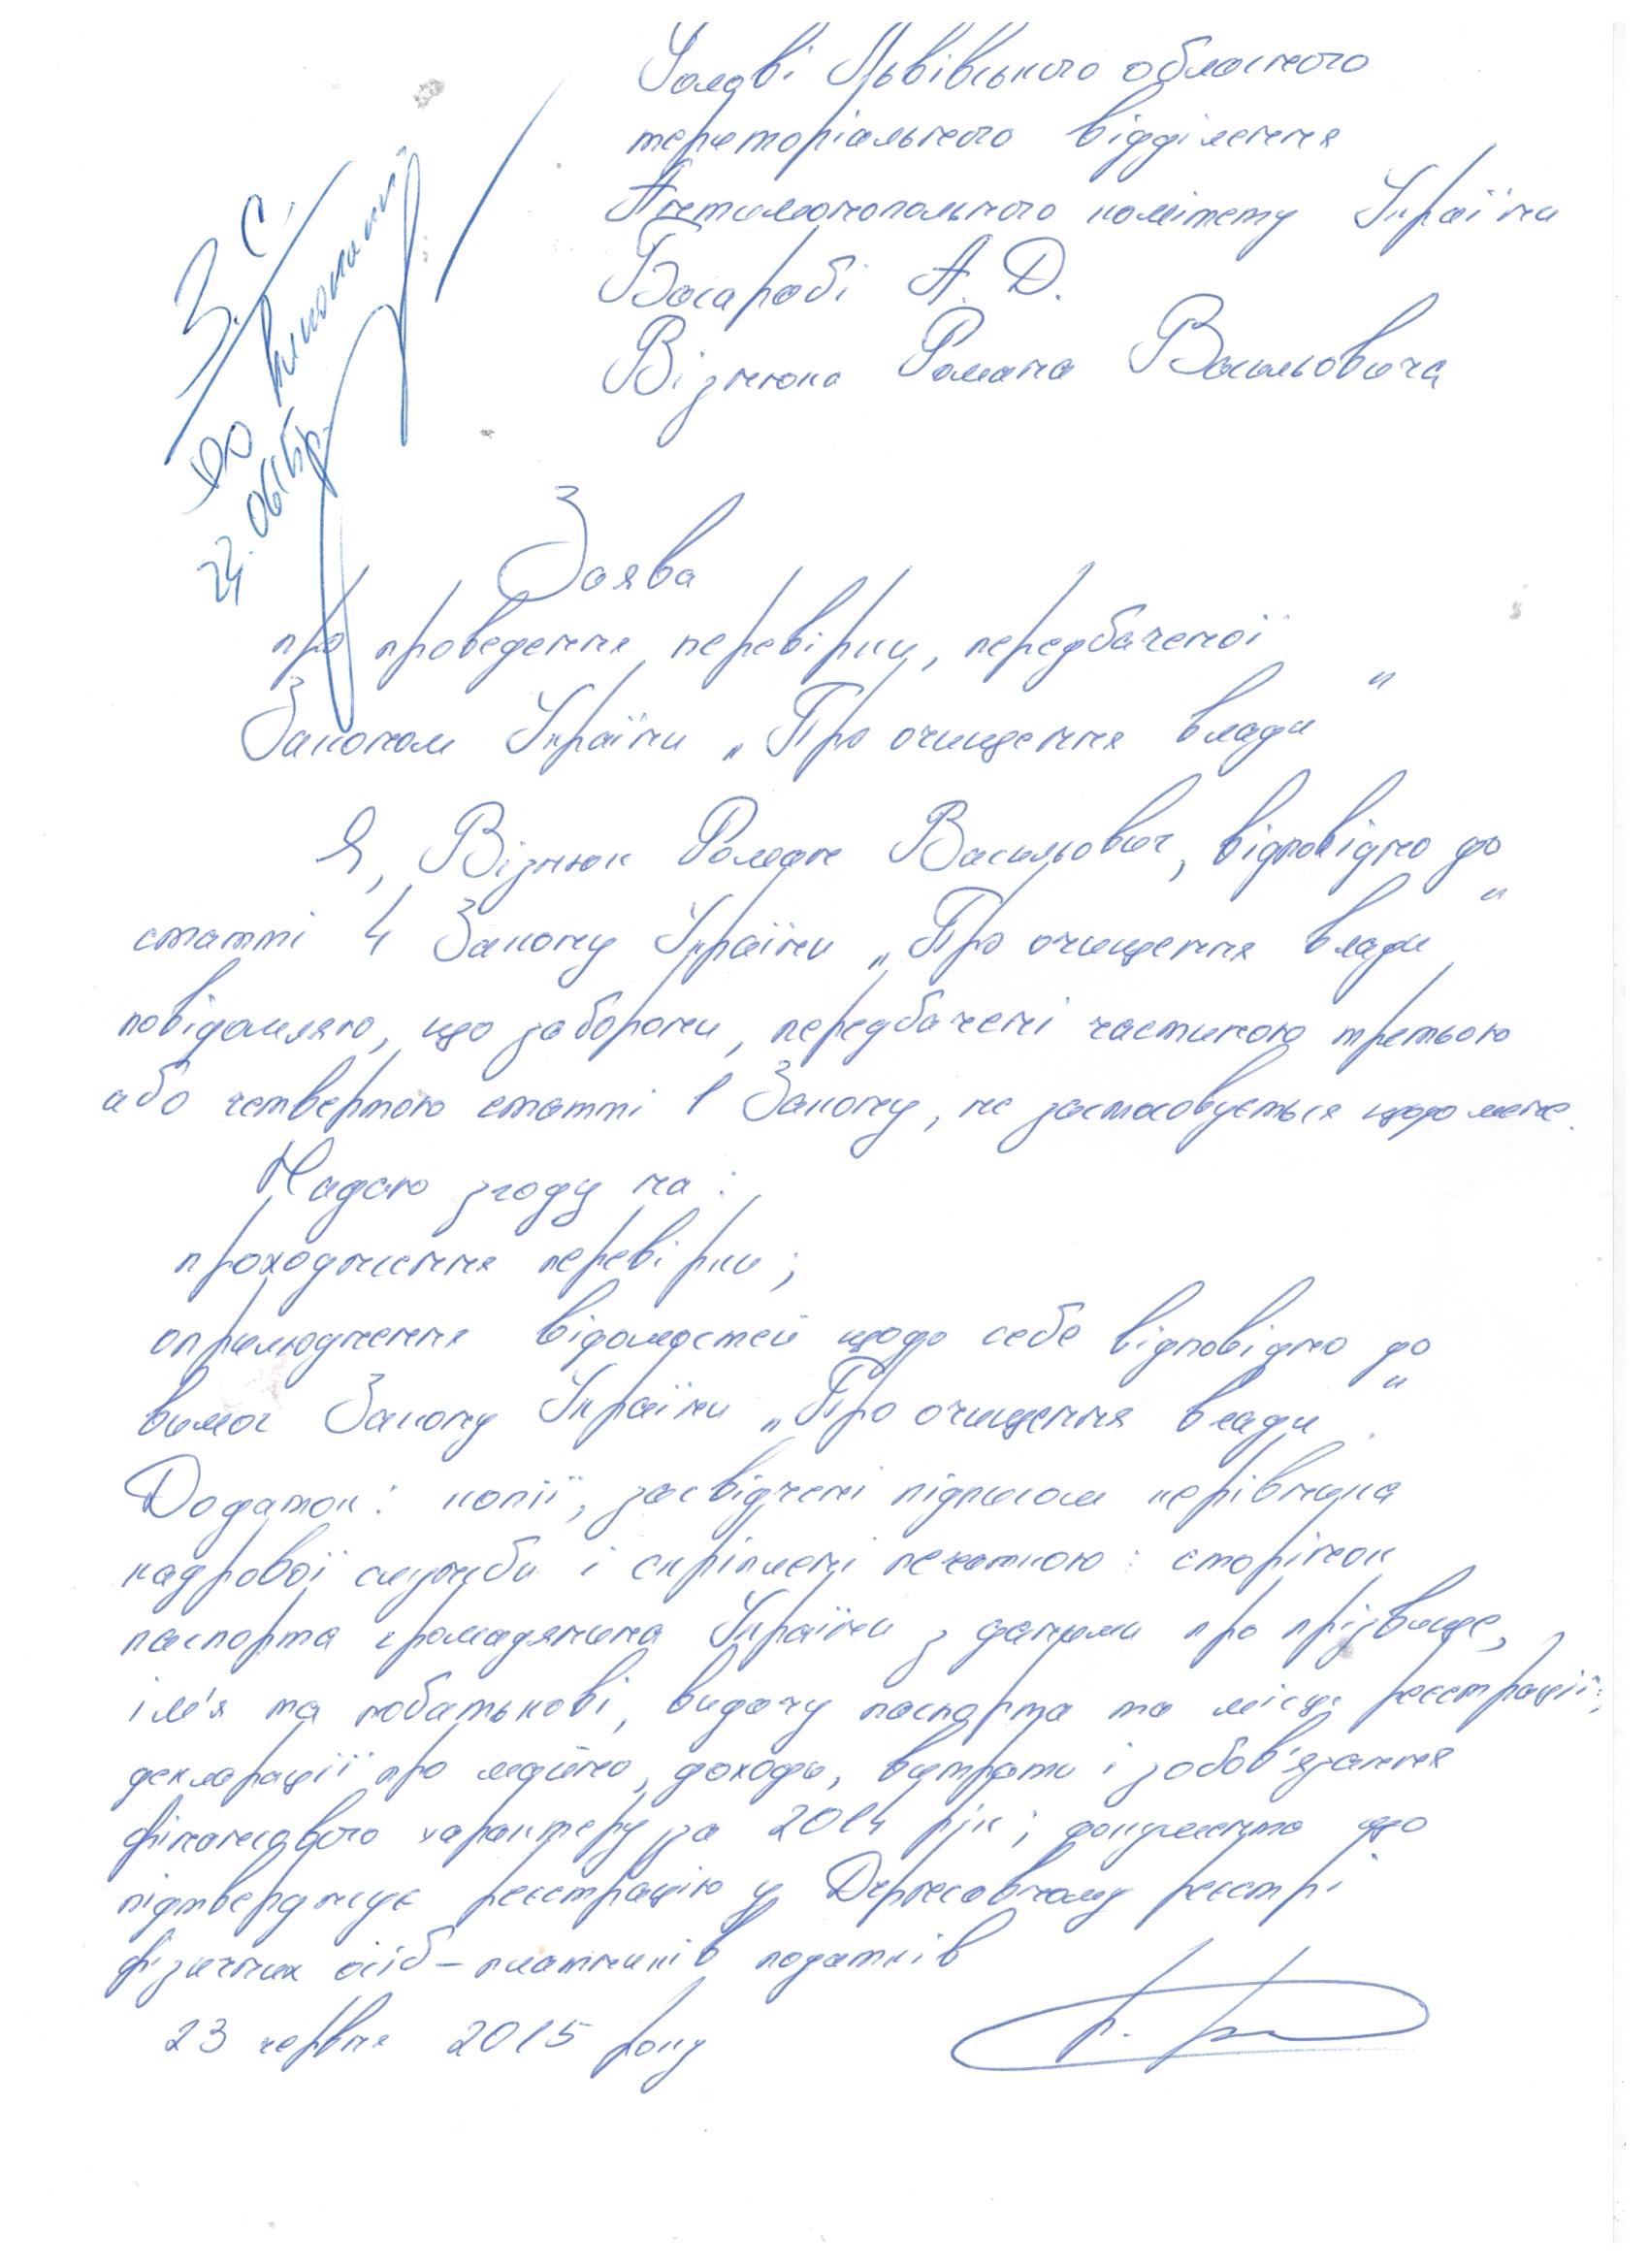 Голові Львівського обласного
територіального відділення
Антимонопольного комітету України
Басарабі А. Д.
Візнюка Романа Васильовича
З. С.
до виконання
Заява
про проведення перевірки, передбаченої
Законом України „Про очищення влади"
Я, Візнюк Роман Васильович, відповідно до
статті 4 Закону України „Про очищення влади"
повідомляю, що заборони, передбачені частиною третьою
або четвертою статті 1 Закону, не застосовується щодо мене.
Надаю згоду на:
проходження перевірки;
оприлюднення відомостей щодо себе відповідно до
вимог Закону України „Про очищення влади".
Додаток: копії, засвідчені підписом керівника
кадрової служби і скріплені печаткою: сторінок
паспорта громадянина України з даними про прізвище,
ім'я та побатькові, видачу паспорта та місце реєстрації;
декларації про майно, доходи, витрати і зобов'язання
фінансового характеру за 2014 рік; документа що
підтверджує реєстрацію у Державному реєстрі
фізичних осіб-платників податків
23 червня 2015 року